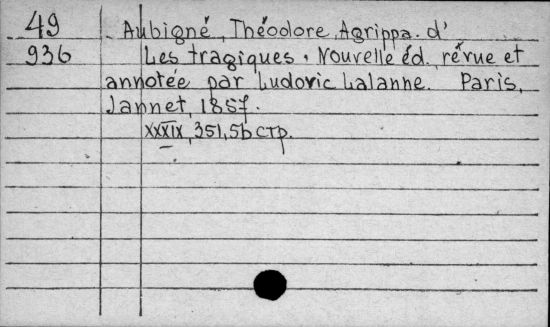 49 Aubigné, Théodore Agrippa. d'
936 Les tragiques. Nouvelle éd. révue et
annotée par Ludovic Lalanne. Paris,
Jannet, 1857.
XXXIX, 351, 5b стр.